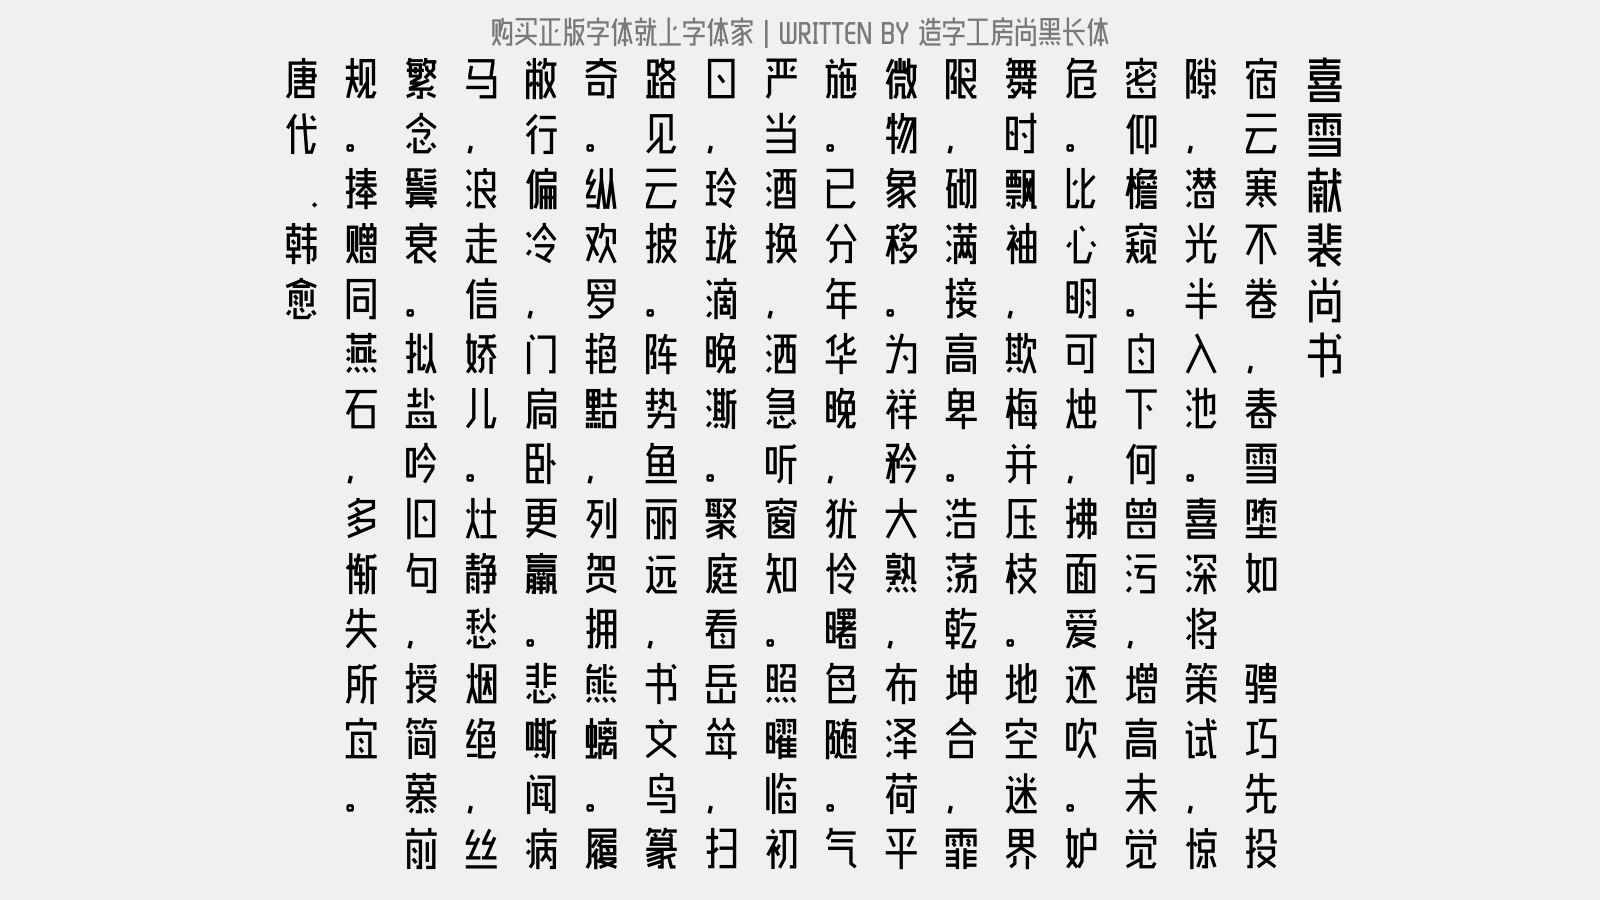 购买正版字体就上字体家 | WRITTEN BY 造字工房尚黑长体
喜雪献裴尚书
宿云寒不卷，春雪堕如 骋巧先投
隙，潜光半入池。喜深将策试，惊
密仰檐窥。自下何曾污，增高未觉
危。比心明可烛，拂面爱还吹。妒
舞时飘袖，欺梅并压枝。地空迷界
限，砌满接高卑。浩荡乾坤合，霏
微物象移。为祥矜大熟，布泽荷平
施。已分年华晚，犹怜曙色随。气
严当酒换，洒急听窗知。照曜临初
日，玲珑滴晚澌。聚庭看岳耸，扫
路见云披。阵势鱼丽远，书文鸟篆
奇。纵欢罗艳黠，列贺拥熊螭。履
敝行偏冷，门扃卧更羸。悲嘶闻病
马，浪走信娇儿。灶静愁烟绝，丝
繁念鬓衰。拟盐吟旧句，授简慕前
规。捧赠同燕石，多惭失所宜。
唐代．韩愈